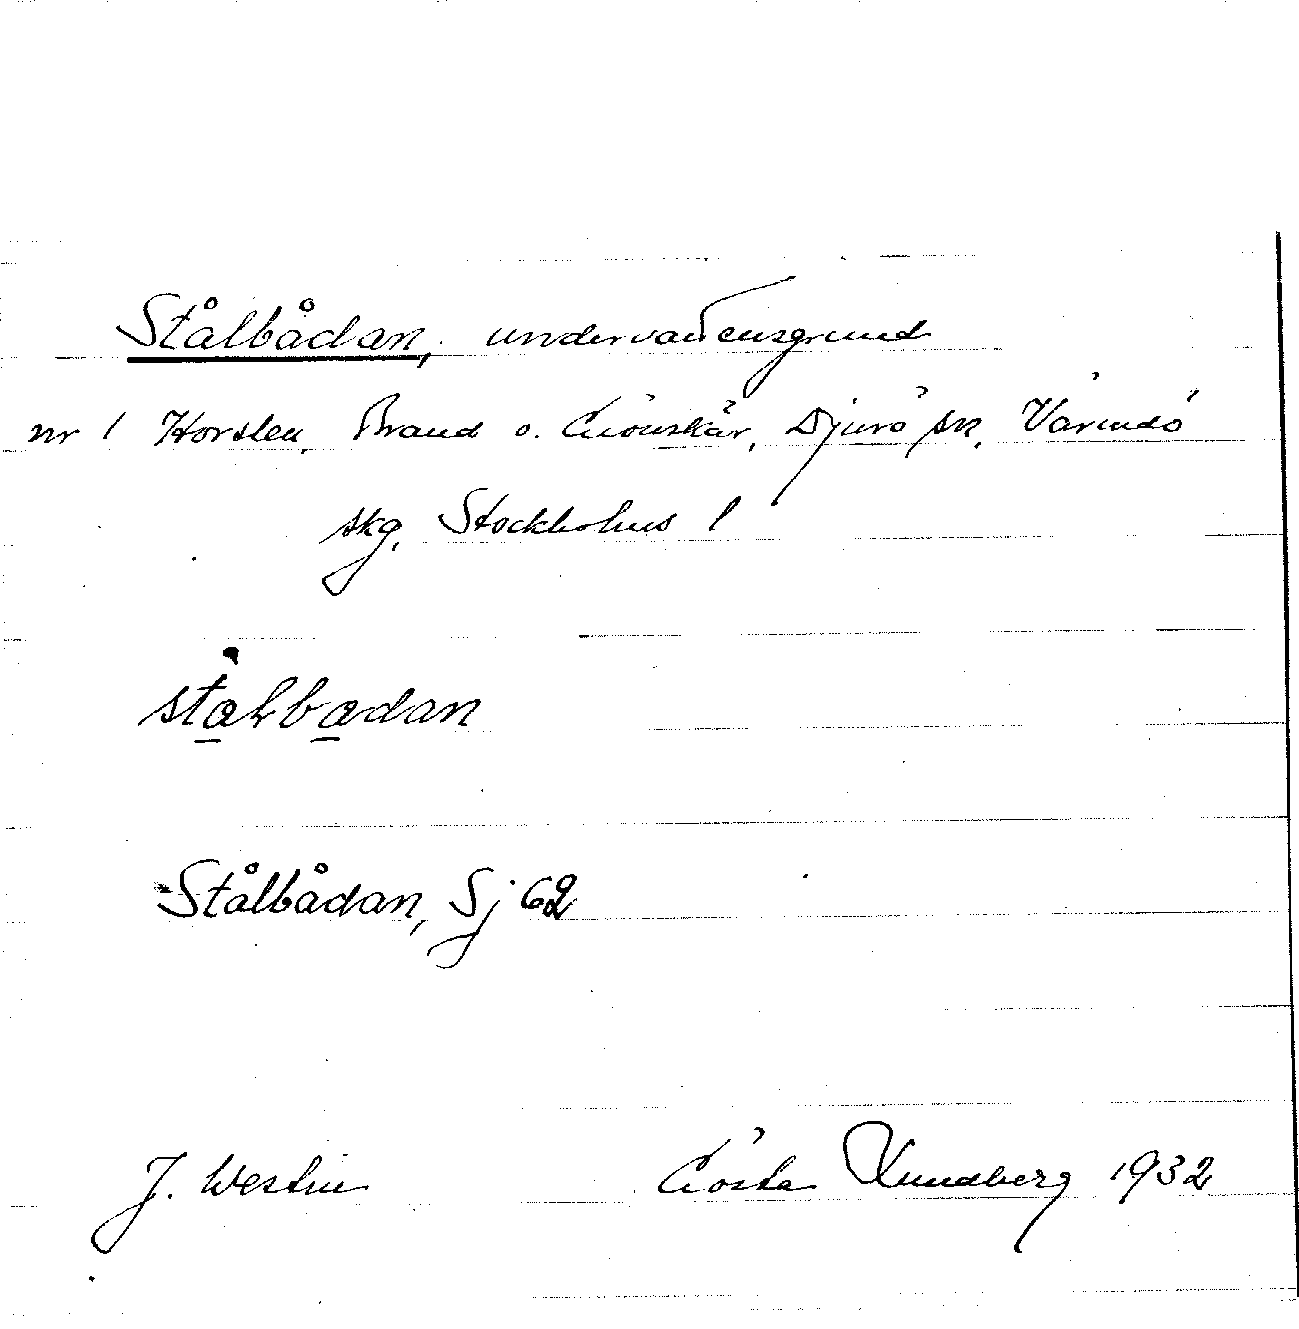 Stålbådan, undervattensgrund
nr 1 Horsten, Brand o. Grönskär, Djurö sn, Värmdö
skg, Stockholms l
stålbådan
Stålbådan, Sj 62
J. Westin Gösta Lundberg 1932